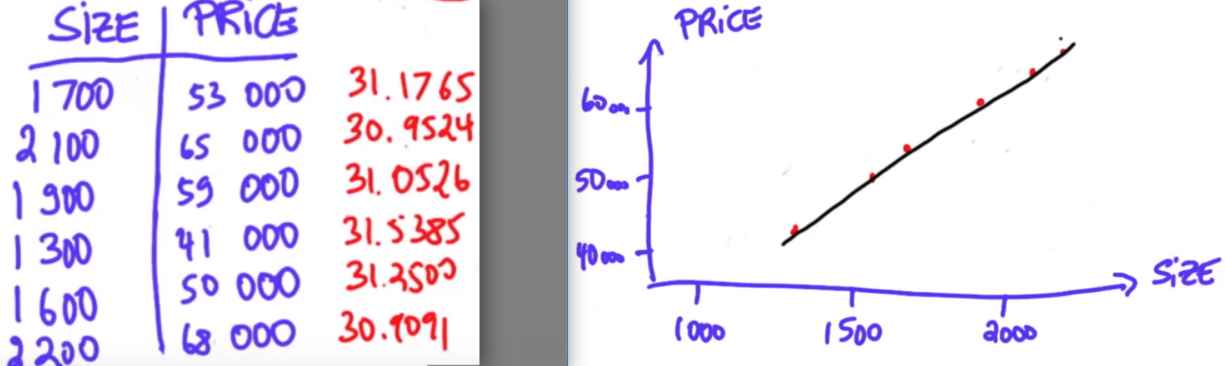 SIZE PRICE
1 700 53 000 31.1765
2 100 65 000 30.9524
1 900 59 000 31.0526
1 300 41 000 31.5385
1 600 50 000 31.2500
2 200 68 000 30.9091
PRICE
60000
50000
40000
SIZE
1000 1500 2000